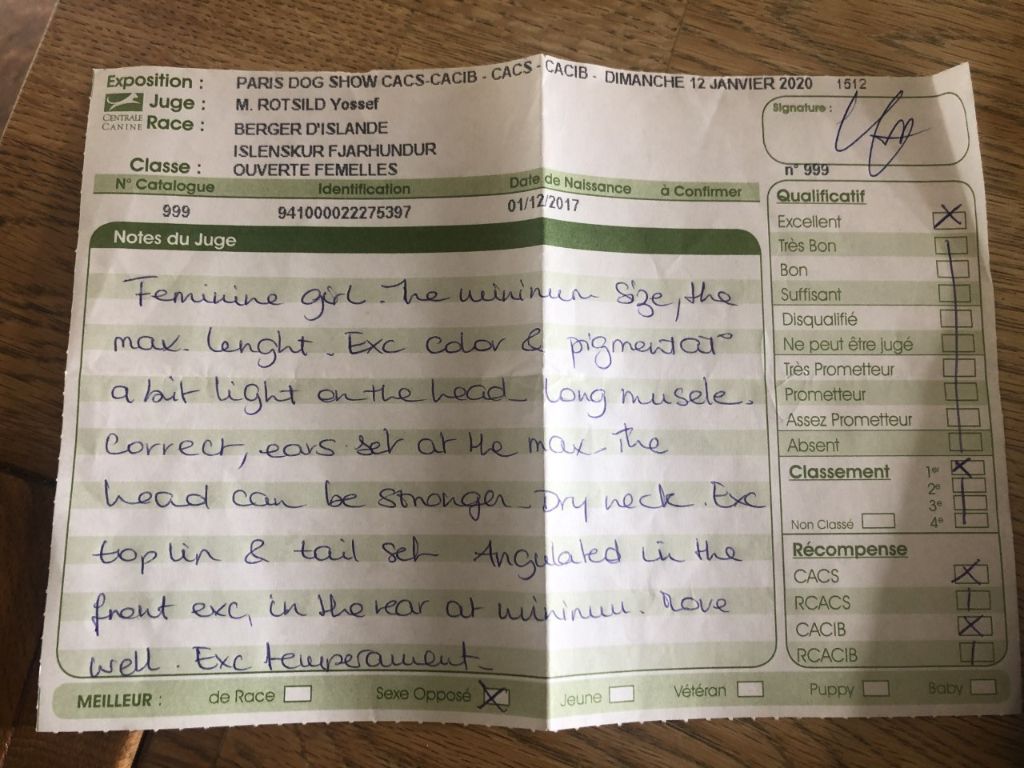 Exposition : PARIS DOG SHOW CACS-CACIB - CACS - CACIB - DIMANCHE 12 JANVIER 2020 1512
Juge : M. ROTSILD Yossef
CENTRALE CANINE
Race : BERGER D'ISLANDE
ISLENSKUR FJARHUNDUR
Classe : OUVERTE FEMELLES
Signature :
n° 999
N° Catalogue Identification Date de Naissance à Confirmer
999 941000022275397 01/12/2017
Notes du Juge
Feminine girl. The mininum size, the
max. lenght. Exc color & pigmentat°
a bit light on the head. Long musele.
Correct, ears set at the max. The
head can be stronger. Dry neck. Exc
toplin & tail set Angulated in the
front exc, in the rear at mininum. Move
well. Exc temperament.
Qualificatif
Excellent
Très Bon
Bon
Suffisant
Disqualifié
Ne peut être jugé
Très Prometteur
Prometteur
Assez Prometteur
Absent
Classement 1er
2e
3e
Non Classé 4e
Récompense
CACS
RCACS
CACIB
RCACIB
MEILLEUR : de Race Sexe Opposé Jeune Vétéran Puppy Baby